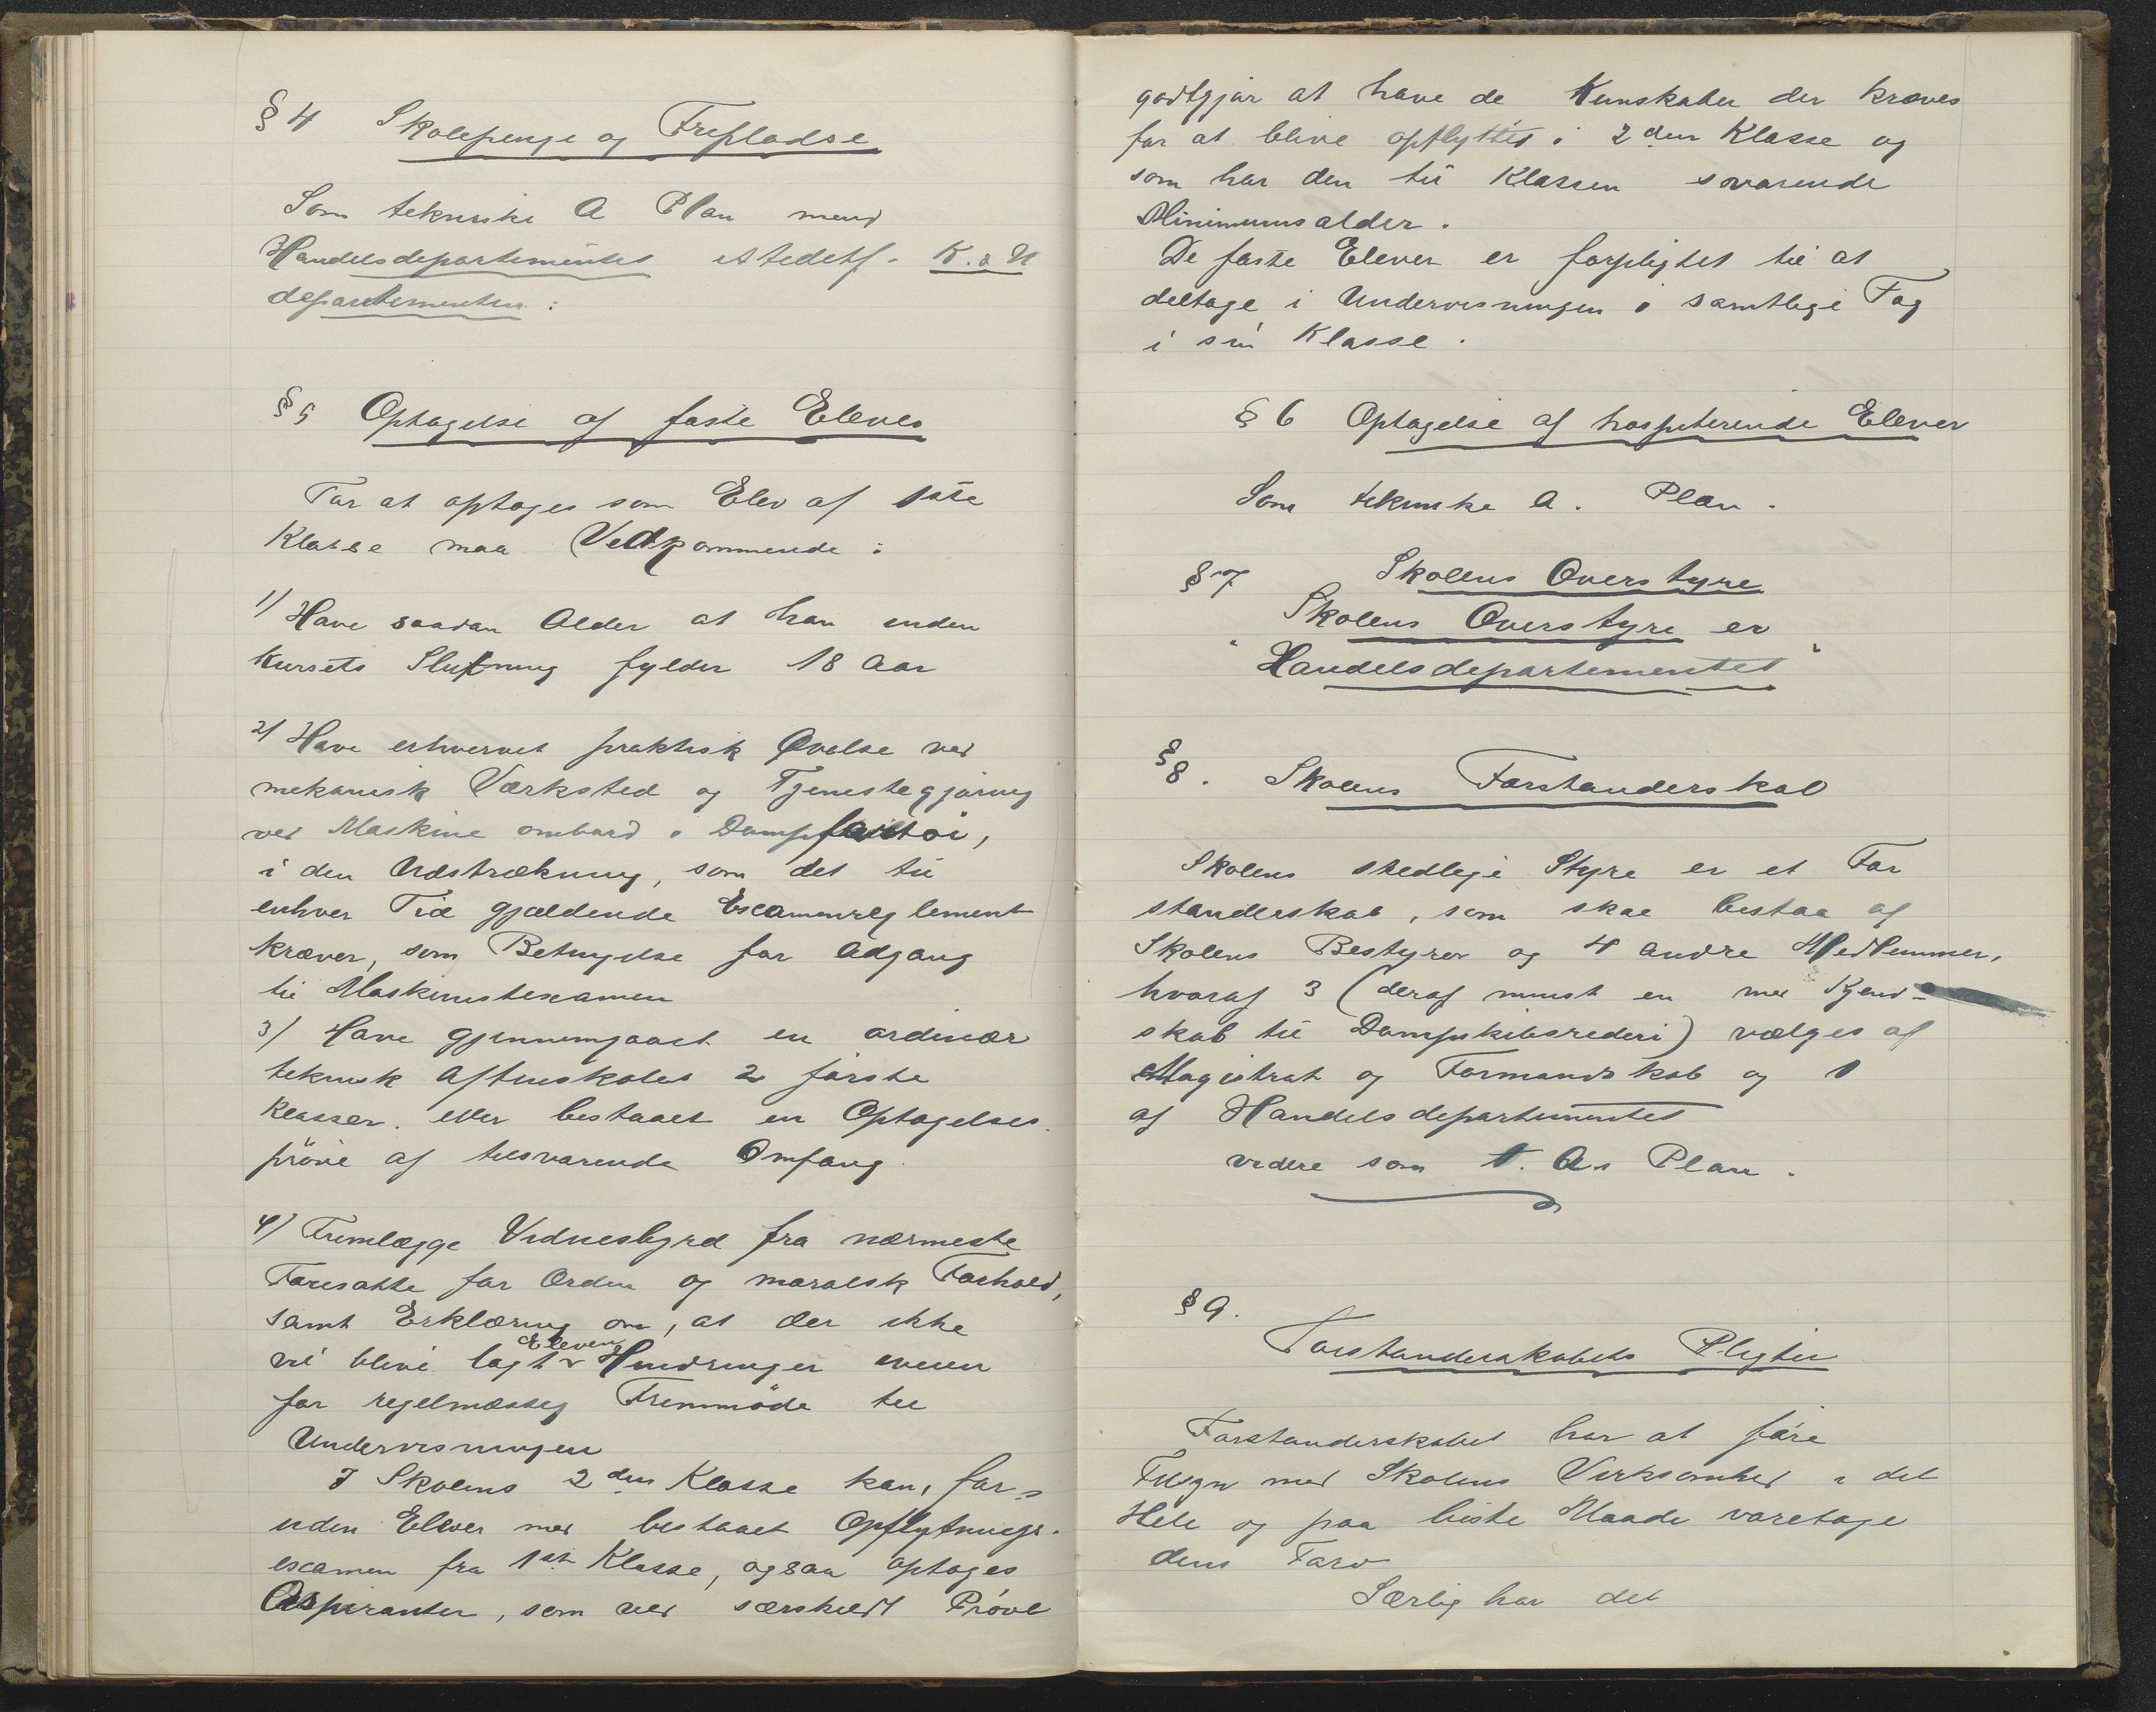 § 4 Skolepenge og Fripladse
Som tekniske A Plan med
Handelsdepartementet istedetf. K. & U
departementen:
§ 5 Optagelse af faste Elever
For at optages som Elev af 1ste
Klasse maa Vedkommende:
1) Have saadan Alder at han inden
Kursets Slutning fylder 18 Aar
2) Have erhvervet praktisk Øvelse ved
mekanisk Værksted og Tjenestegjøring
ved Maskine ombord i Dampfartøi,
i den Udstrækning, som det til
enhver Tid gjældende Examensreglement
kræver, som Betingelse for Adgang
til Maskinistexamen
3) Have gjennemgaaet en ordinær
teknisk Aftenskoles 2 første
Klasser. eller bestaaet en Optagelses-
prøve af tilsvarende Omfang.
4) Fremlægge Vidnesbyrd fra nærmeste
Foresatte for Orden og moralsk Forhold,
samt Erklæring om, at der ikke
Eleven
vil blive lagt Hindringer iveien
for regelmæssig Fremmøde til
Undervisningen
I Skolens 2den Klasse kan, for-
uden Elever med bestaaet Opflytnings-
examen fra 1ste Klasse, ogsaa optages
Aspiranter, som ved særskilt Prøve
godtgjør at have de Kunskaber der kræves
for at blive opflyttet i 2den Klasse og
som har den til Klassen svarende
Minimumsalder.
De faste Elever er forpligtet til at
deltage i Undervisningen i samtlige Fag
i sin Klasse.
§ 6 Optagelse af hospiterende Elever
Som tekniske A. Plan.
§ 7 Skolens Overstyre
Skolens Overstyre er
"Handelsdepartementet"
§ 8. Skolens Forstanderskab
Skolens stedlige Styre er et For
standerskab, som skal bestaa af
Skolens Bestyrer og 4 andre Medlemmer,
hvoraf 3 (deraf minst en med Kjend-
skab til Dampskibsrederi) vælges af
Magistrat og Formandskab og 1
af Handelsdepartementet
videre som t. As Plan.
§ 9.
Forstanderskabets Pligter
Forstanderskabet har at føre
Tilsyn med Skolens Virksomhed i det
Hele og paa bedste Maade varetage
dens Tarv
Særlig har det